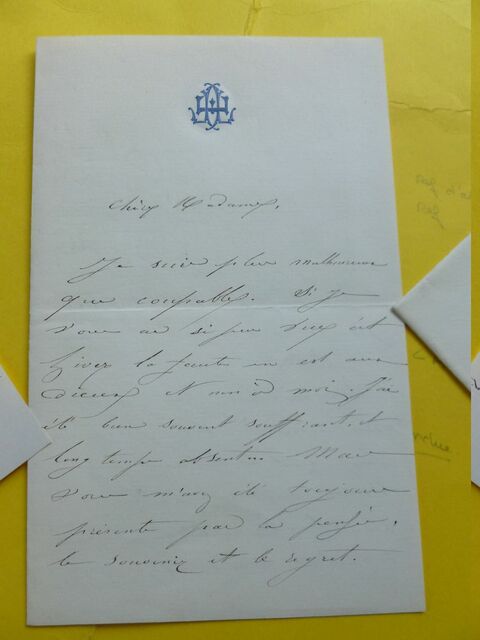 Chère Madame,
Je suis plus malheureuse
que coupable. Si je
vous ai si peu vue cet
hiver la faute en est aux
dieux et non à moi. J'ai
été bien souvent souffrante, et
long temps absente. Mais
vous m'avez été toujours
présente par la pensée,
le souvenir et le regret.